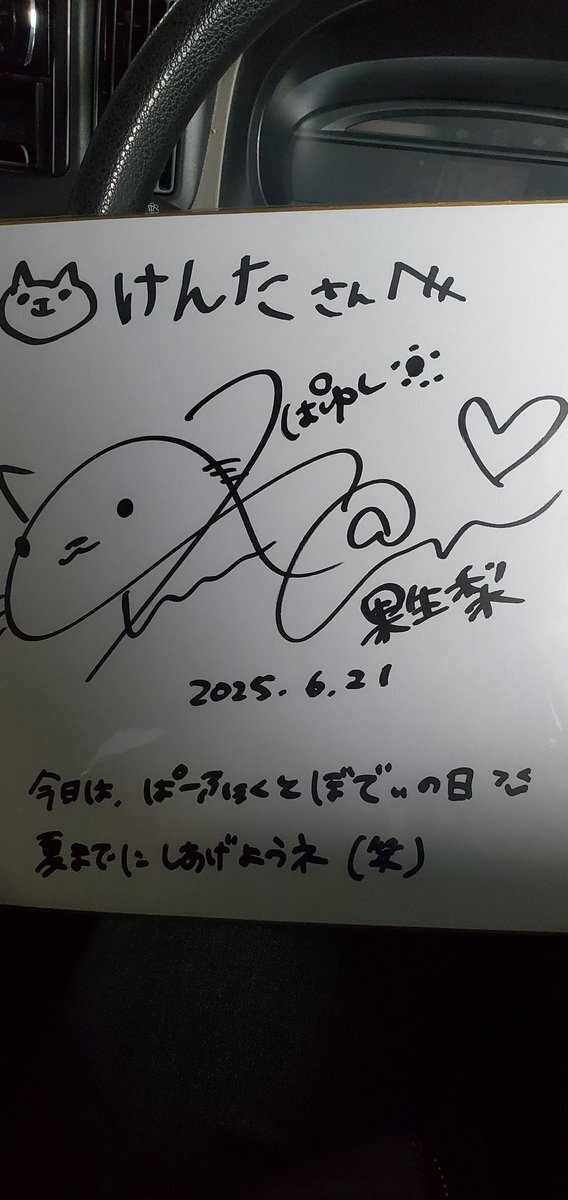 けんたさんへ
ぱゆし
果生梨
2025.6.21
今日は、ぱーふぇくとぼでぃの日
夏までにしあげようネ(笑)